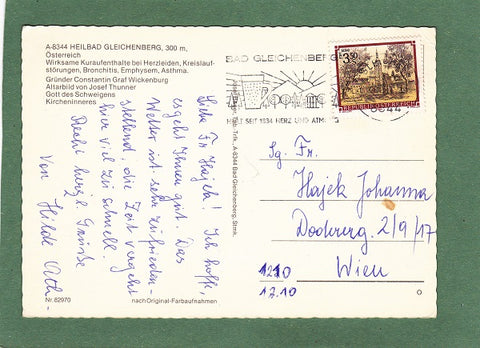 A-8344 HEILBAD GLEICHENBERG, 300 m,
Österreich
Wirksame Kuraufenthalte bei Herzleiden, Kreislauf-
störungen, Bronchitis, Emphysem, Asthma.
Gründer Constantin Graf Wickenburg
Altarbild von Josef Thunner
Gott des Schweigens
Kircheninneres
Liebe Fr. Hajek! Ich hoffe,
es geht Ihnen gut. Das
Wetter ist sehr zufrieden-
stellend, die Zeit vergeht
hier viel zu schnell.
Recht herzl. Grüße
Von Hilde
Nr. 82970
nach Original-Farbaufnahmen
Trfk. A-8344 Bad Gleichenberg, Stmk.
BAD GLEICHENBERG
SEIT 1834 HERZ UND
3.50
REPUBLIK ÖSTERREICH
8344
Sg. Fr.
Hajek Johanna
2/9/17
1210 Wien
12.10